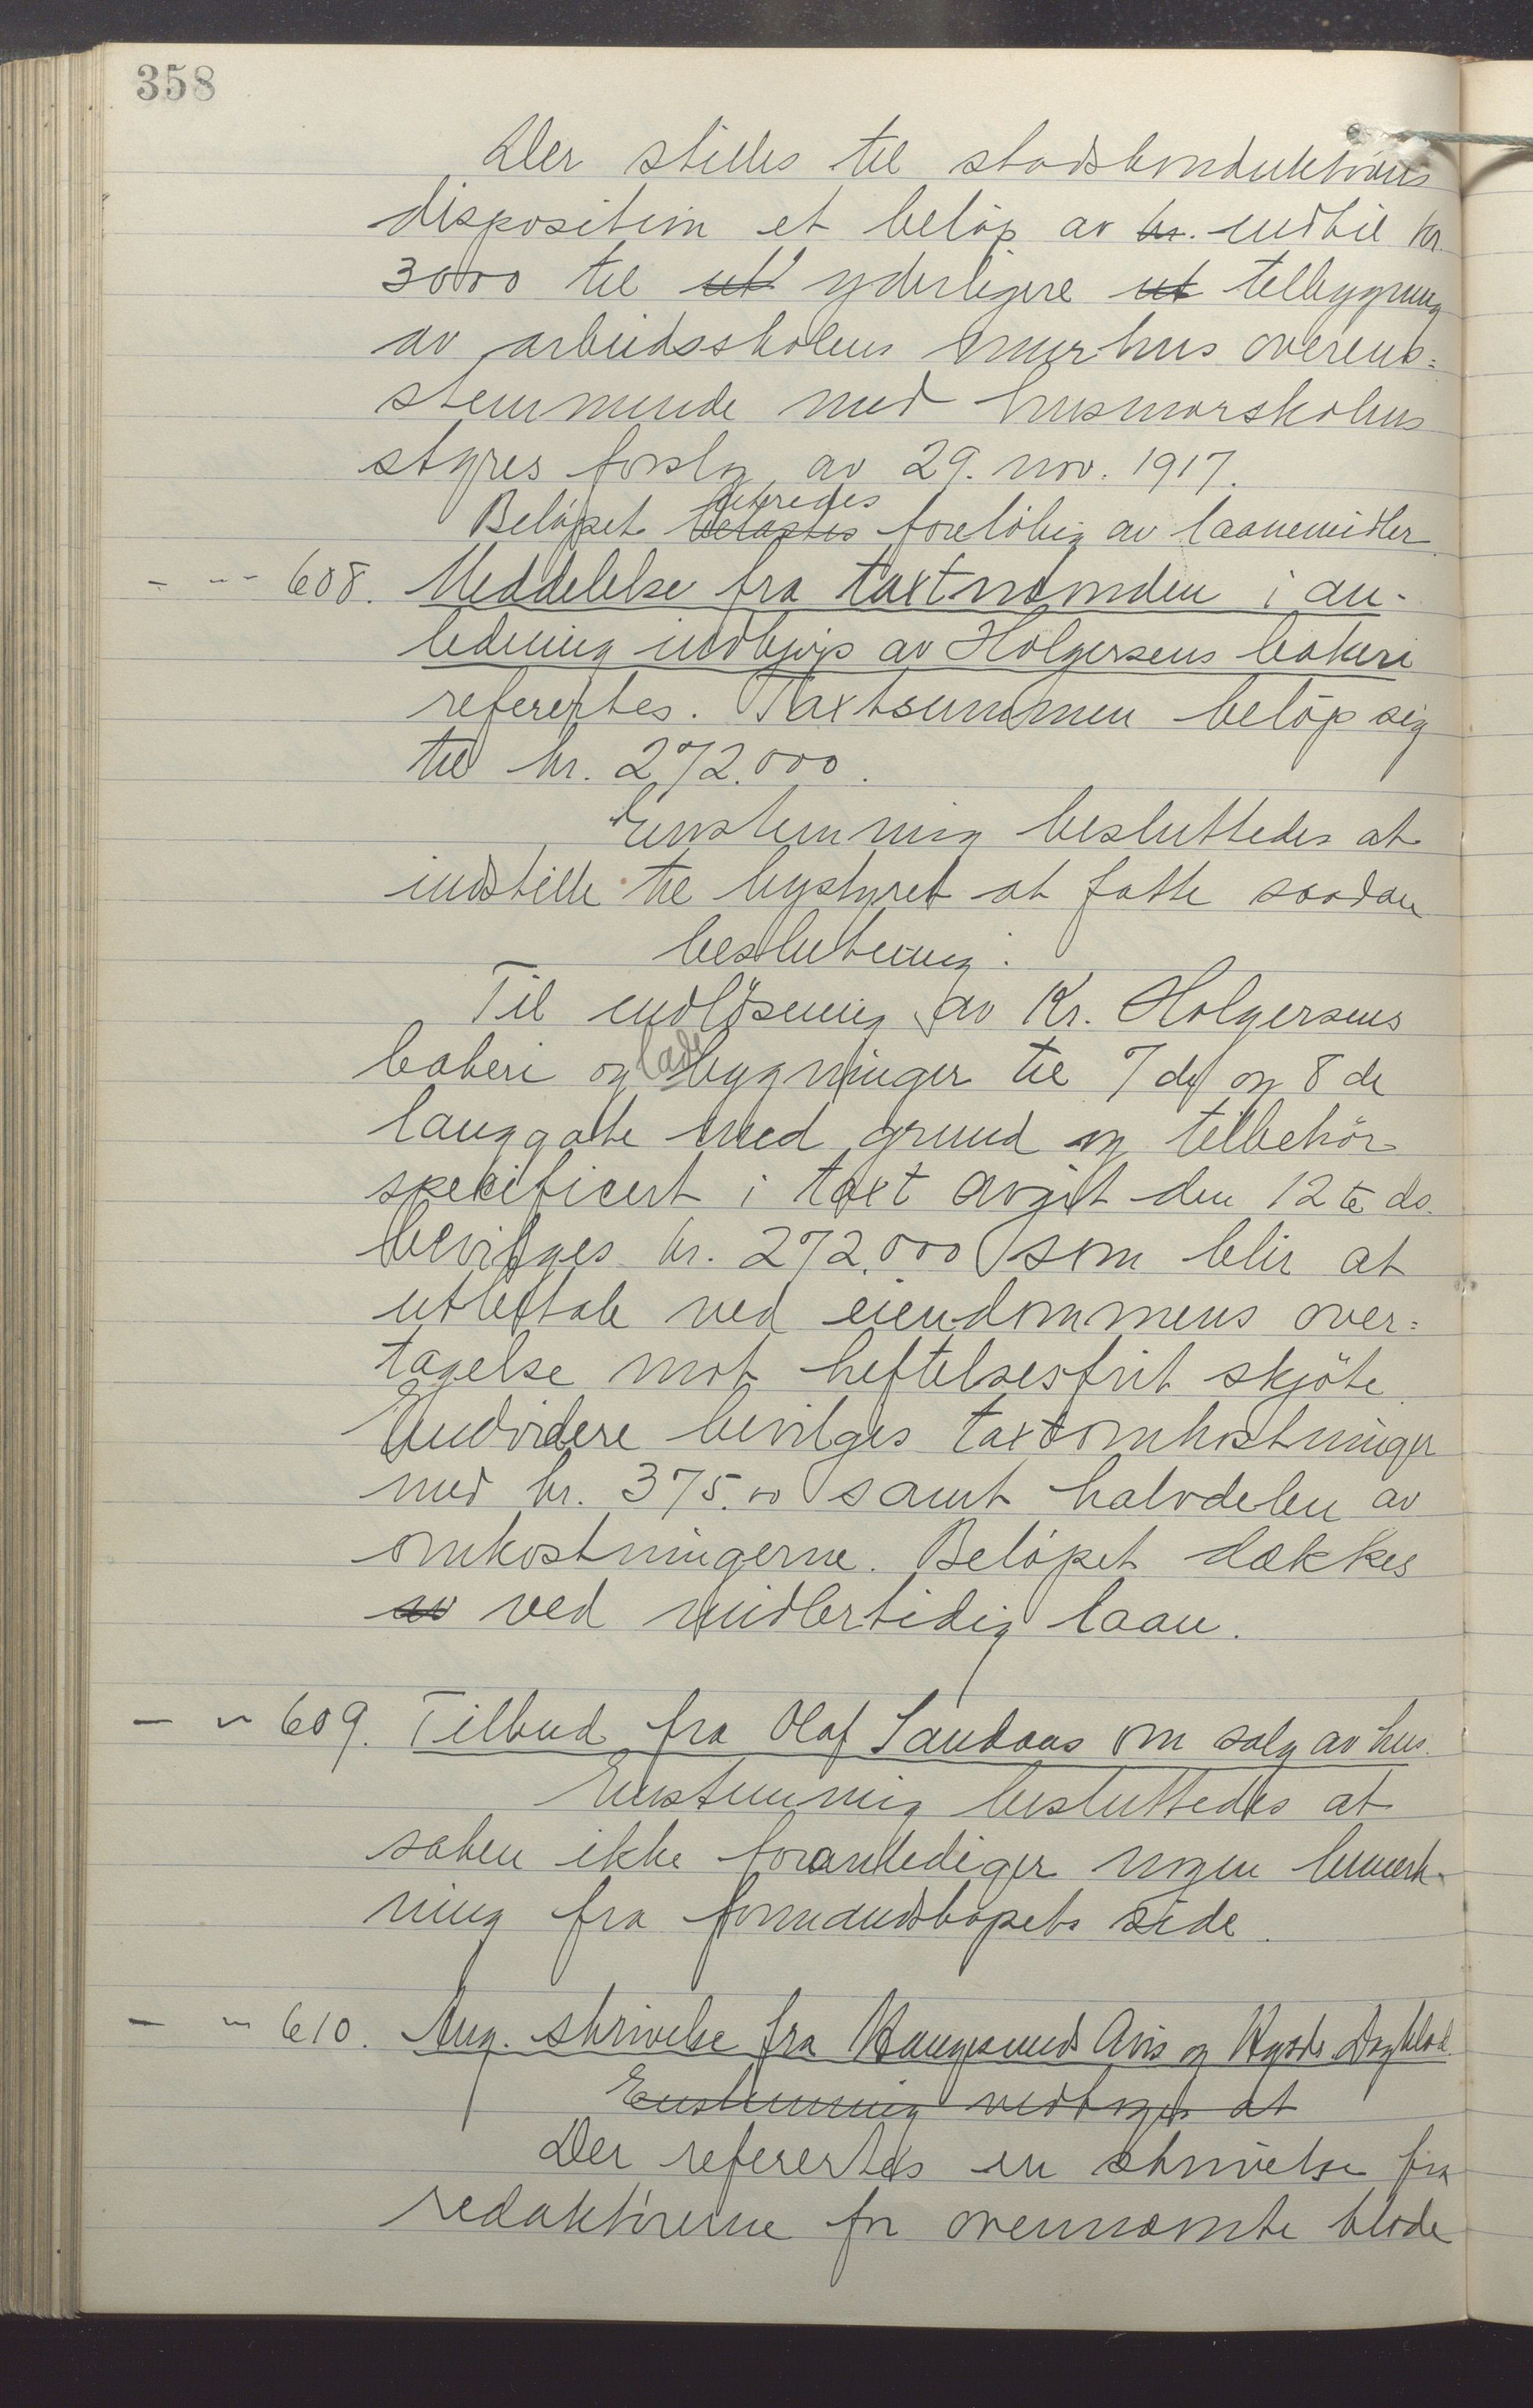 358
Der stilles til stadskonduktörens
disposition et belöp av kr. indtil kr.
3000 til ut yderligere ut tilbygning
av arbeidsskolens murhus overens=
stemmende med husmorskolens
styres forslag av 29. nov. 1917.
utredes
Belöpet belastes forelöbig av laanemidler.
- -"- 608. Meddelelse fra taxtnemnden i an-
ledning indkjøp av Holgersens bakeri
refereptes. Taxtsummen beløp sig
til kr. 272.000.
Enstemmig besluttedes at
indstille til bystyret at fatte saadan
beslutning:
Til indløsning av Kr. Holgersens
bakeri og bygninger til 7de og 8de
langgate med grund og tilbehör
specificert i taxt avgit den 12te ds.
bevilges kr. 272.000 som blir at
utbetale ved eiendommens over=
tagelse mot heftelsesfrit skjöte.
Endvidere bevilges taxtomkostninger
med kr. 375.00 samt halvdelen av
omkostningerne. Belöpet dækkes
av ved midlertidig laan.
- " 609. Tilbud fra Olaf Sandaas om salg av hus.
Enstemmig besluttedes at
saken ikke foranlediger nogen bemerk-
ning fra formandskapets side.
- " 610. Ang. skrivelse fra Haugesunds Avis og Kysts Dagblad.
Enstemmig vedtoges at
Der refertes en skrivelse fra
redaktörerne for ovennævnte blade